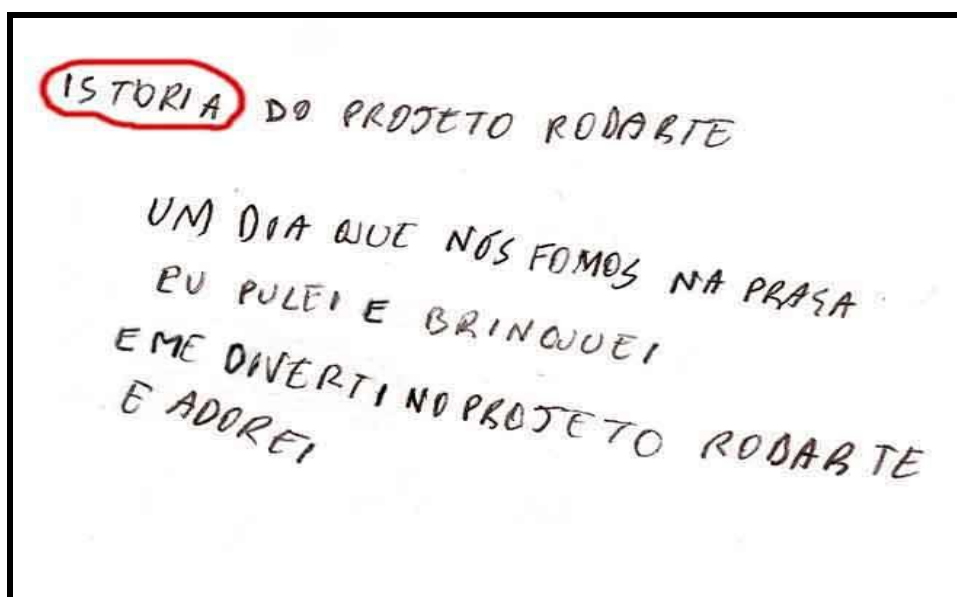 ISTORIA DO PROJETO RODARTE
UM DIA QUE NÓS FOMOS NA PRASA
EU PULEI E BRINQUEI
E ME DIVERTI NO PROJETO RODARTE
E ADOREI